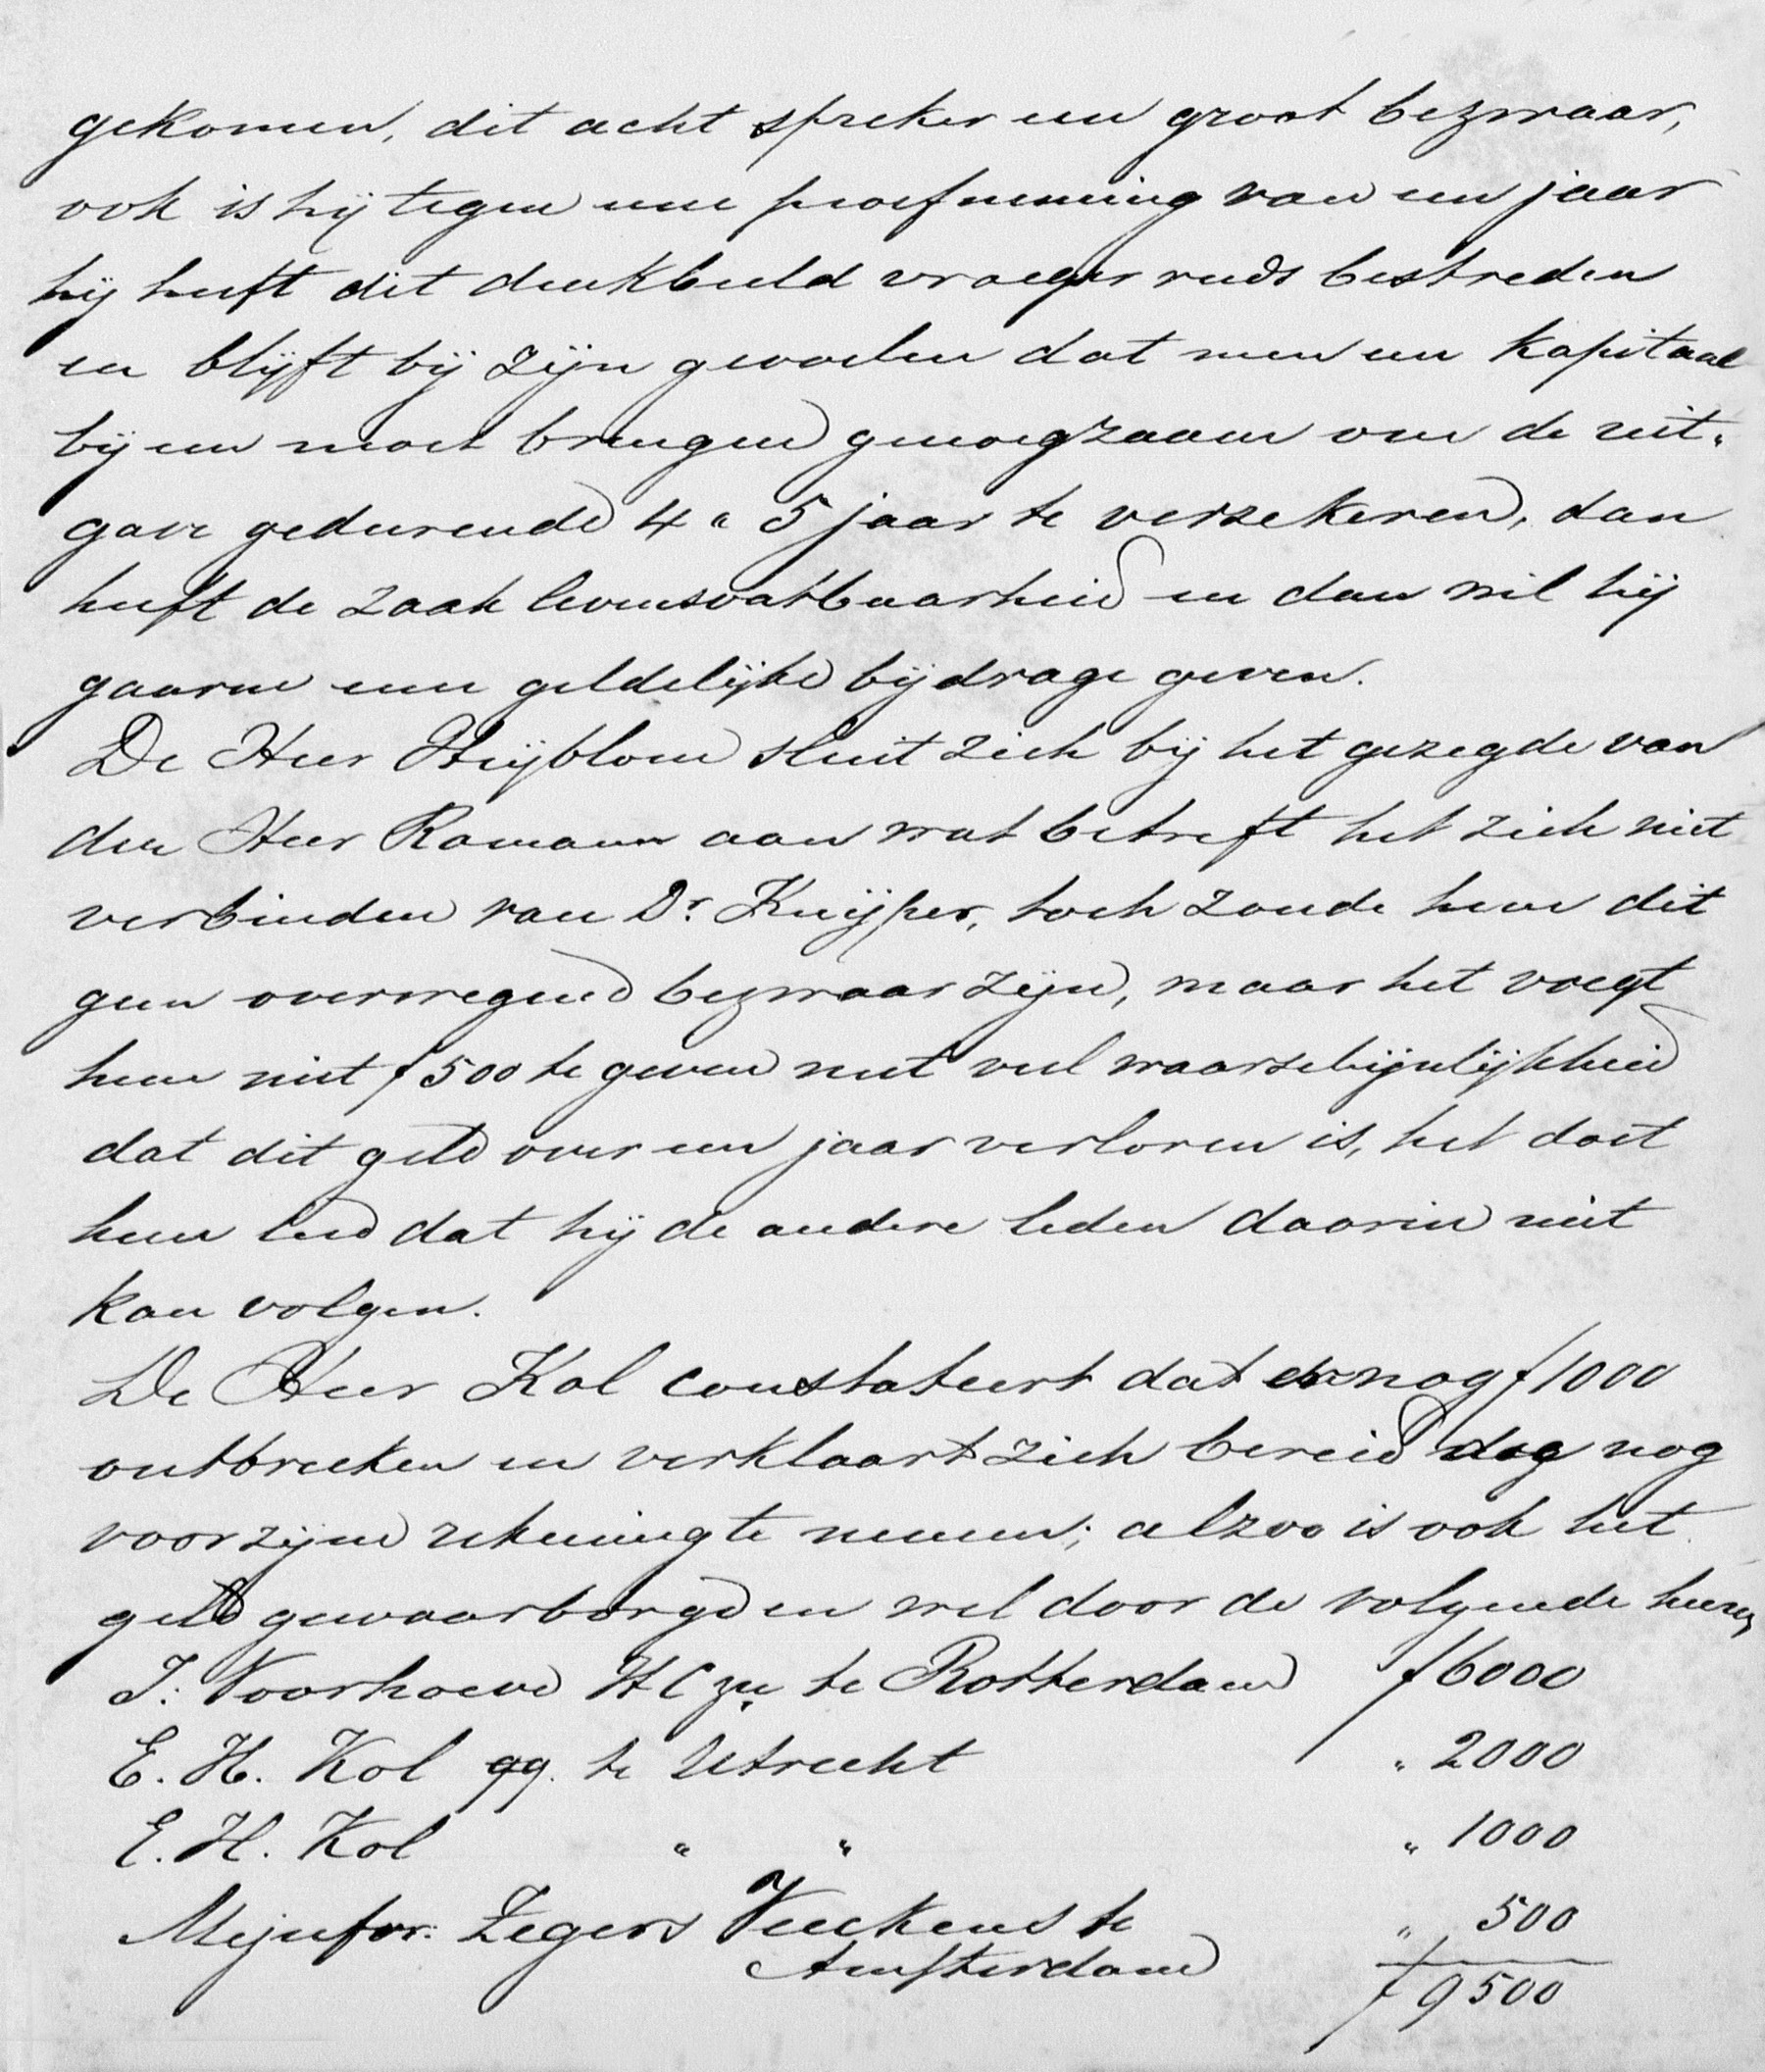 gekomen, dit acht spreker een groot bezwaar,
ook is hij tegen eene proefneming van een jaar
hij heeft dit denkbeeld vroeger reeds bestreden
en blijft bij zijn gevoelen dat men een kapitaal
bijeen moet brengen genoegzaam om de uit-
gave gedurende 4 a 5 jaar te verzekeren, dan
heeft de zaak levensvatbaarheid en dan wil hij
gaarne eene geldelijke bijdrage geven.
De Heer Huijblom sluit zich bij het gezegde van
den Heer Ramann aan wat betreft het zich niet
verbinden van Dr. Kuijper, toch zoude hem dit
geen overwegend bezwaar zijn, maar het voegt
hem niet f 500 te geven met veel waarschijnlijkheid
dat dit geld over een jaar verloren is, het doet
hem leed dat hij de andere leden daarin niet
kan volgen.
De Heer Kol constateert dat er nog f 1000
ontbreeken en verklaart zich bereid deze nog
voor zijne rekening te nemen; alzoo is ook het
geld gewaarborgd en wel door de volgende heeren
J. Voorhoeve H C zn te Rotterdam f 6000
E. H. Kol qq. te Utrecht " 2000
E. H. Kol " " " 1000
Mejufvr. Zegers Veeckens te " 500
Amsterdam f 9500